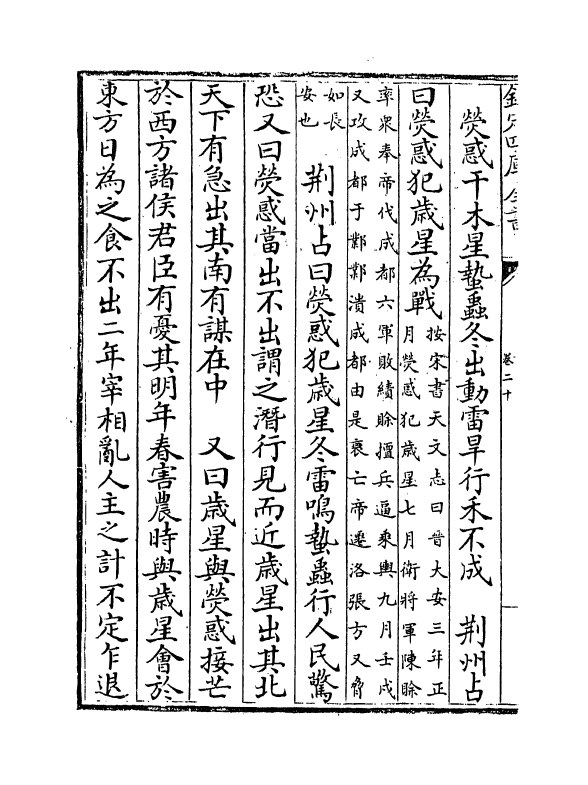 欽定四庫全書
卷二十
熒惑干木星蟄蟲冬出動雷旱行禾不成　荆州占
曰熒惑犯歲星為戰
按宋書天文志曰晉大安三年正
月熒惑犯歲星七月衛將軍陳眕
率衆奉帝伐成都六軍敗績眕擅兵逼乘輿九月壬戌
又攻成都于鄴鄴潰成都由是衰亡帝遷洛張方又脅
如長
安也
荆州占曰熒惑犯歲星冬雷鳴蟄蟲行人民驚
恐又曰熒惑當出不出謂之潛行見而近歲星出其北
天下有急出其南有謀在中　又曰歲星與熒惑接芒
於西方諸侯君臣有憂其明年春害農時與歲星會於
東方日為之食不出二年宰相亂人主之計不定乍退